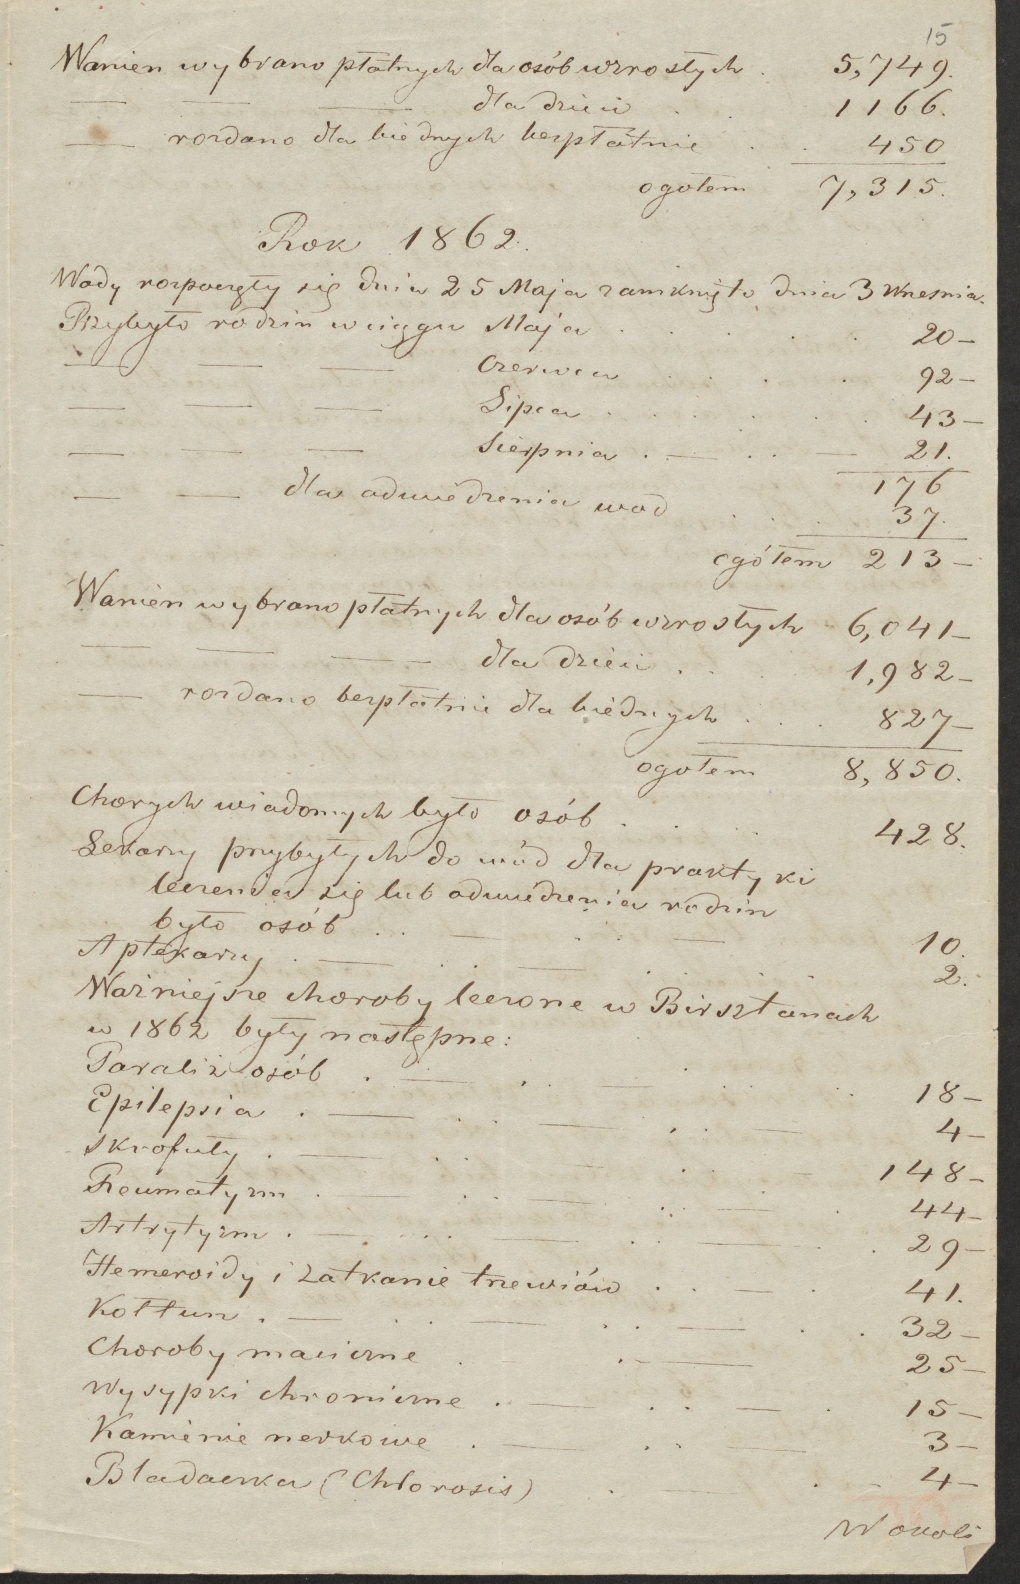 15
Wanien wybrano płatnych dla osób wzrostych . 5,749.
— — — dla dzieci . . 1166.
— rozdano dla biednych bezpłatnie . . 450
ogołem 7,315.
Rok 1862.
Wody rozpoczęły się dnia 25 Maja zamknięto dnia 3 Wresnia.
Przybyło rodzin w ciągu Maja . . . . 20—
— — — Czerwca . . . . 92—
— — — Lipca . . . . . 43—
— — — Sierpnia . — . . — 21.
176
— — dla odwiedzenia wod . . . 37.
ogółem 213—
Wanien wybrano płatnych dla osób wzrostych 6,041—
— — — — dla dzieci . . . 1,982—
— rozdano bezpłatnie dla biednych . . . 827—
ogołem 8,850.
Chorych wiadomych było osób . . . . 428.
Lekarzy przybyłych do wód dla praktyki
leczenia się lub odwiedzenia rodzin
było osób . . — . . — 10.
Aptekarzy . — . . — . . . 2.
Ważniejsze choroby leczone w Birsztanach
w 1862 były następne:
Paraliż osób . — . . — . — . 18—
Epilepsia . — . . — . . — 4—
Skrofuły . — . . — . . — 148—
Reumatyzm . — . . — . . . 44—
Artrytyzm . — . . . — . . — . 29—
Hemeroidy i zatkanie trzewiów . . — . 41.
Kołtun . — . . — . . — . . 32—
Choroby maciczne . . - — 25—
Wysypki chroniczne . — . . — . 15—
Kamienie nerkowe . — . . — 3—
Bladaczka (Chlorosis) . — . — 4—
W okoli